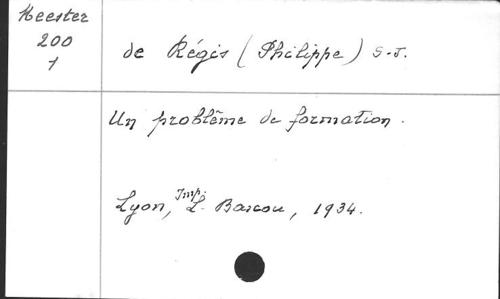 Meester
200
1
de Régis (Philippe) S.J.
Un problême de formation.
Lyon, Imp. L. Bascou, 1934.